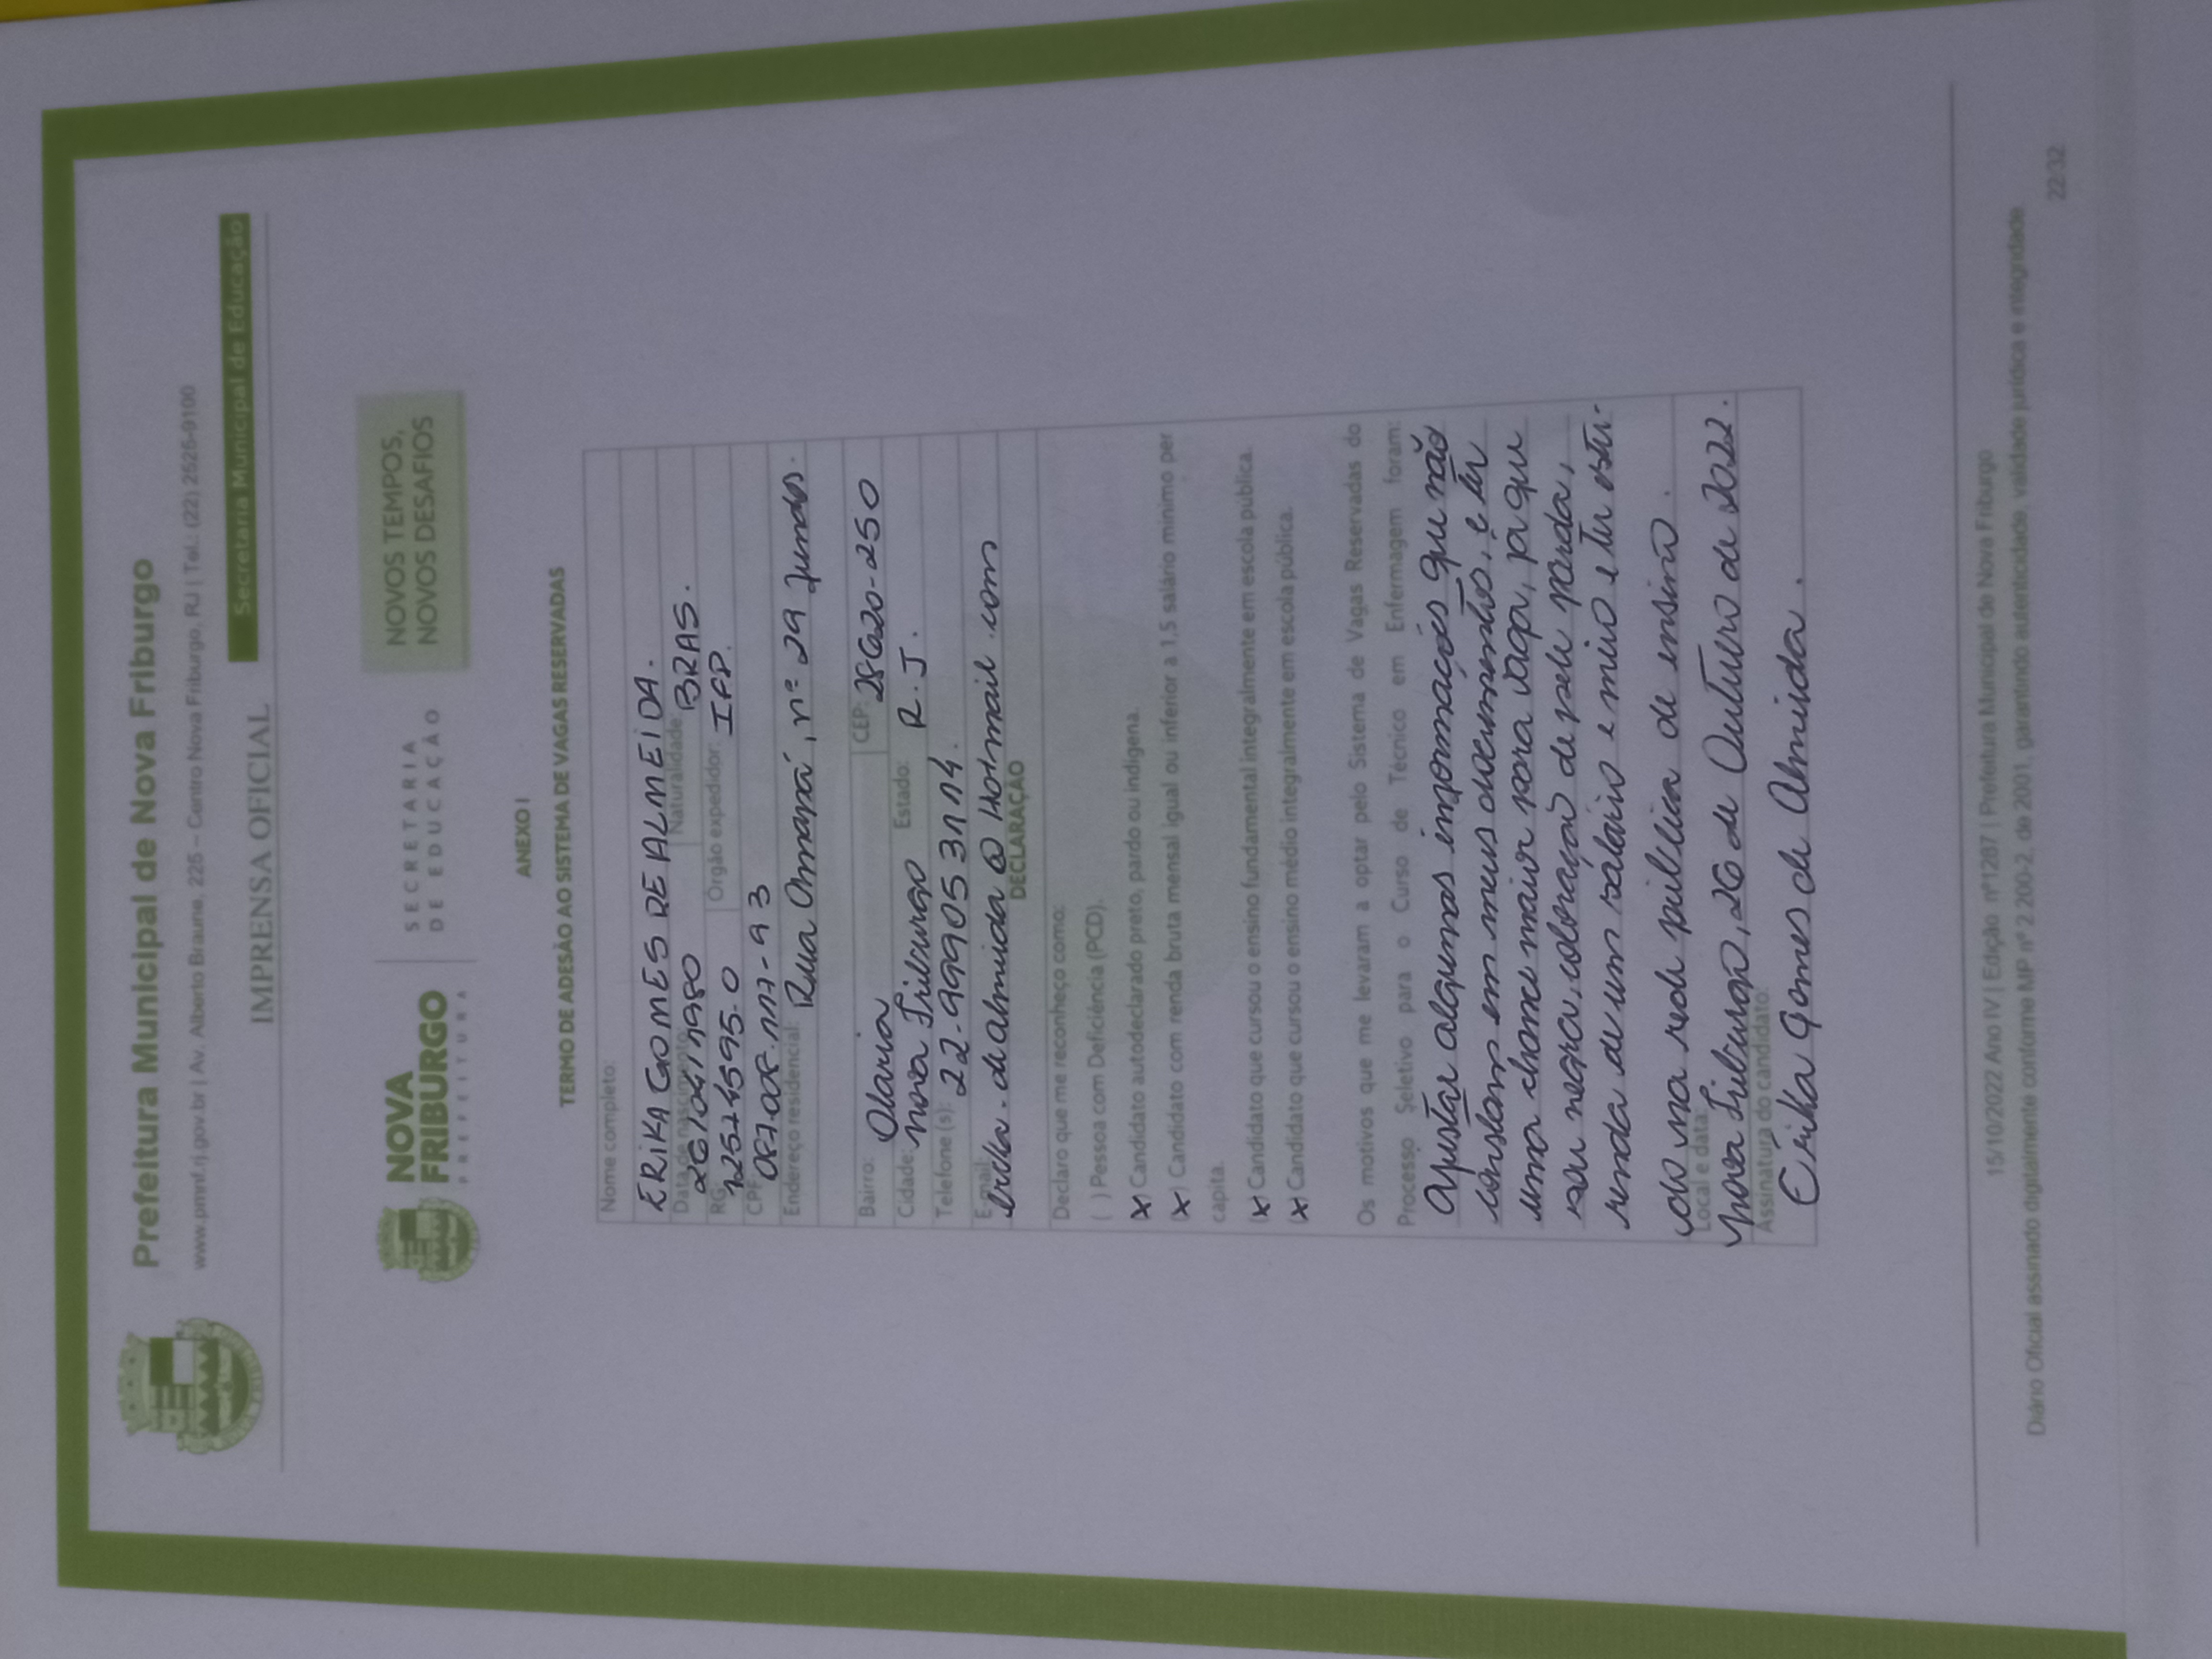 Prefeitura Municipal de Nova Friburgo
www.pmnf.rj.gov.br | Av. Alberto Braune, 225 – Centro Nova Friburgo, RJ | Tel.: (22) 2525-9100
Secretaria Municipal de Educação
IMPRENSA OFICIAL
NOVA FRIBURGO
PREFEITURA
SECRETARIA
DE EDUCAÇÃO
NOVOS TEMPOS,
NOVOS DESAFIOS
ANEXO I
TERMO DE ADESÃO AO SISTEMA DE VAGAS RESERVADAS
Nome completo:
ERIKA GOMES DE ALMEIDA.
Data de nascimento: 26/04/1980 Naturalidade: BRAS.
RG: 12574595-0 Órgão expedidor: IFP.
CPF: 087.008.117-93
Endereço residencial: Rua Amapá, nº 29 fundos.
Bairro: Olaria CEP: 28620-250
Cidade: Nova Friburgo Estado: R.J.
Telefone (s): 22-999053114.
E-mail: erika.dealmeida@Hotmail.com
DECLARAÇÃO
Declaro que me reconheço como:
( ) Pessoa com Deficiência (PCD).
(X) Candidato autodeclarado preto, pardo ou indígena.
(X) Candidato com renda bruta mensal igual ou inferior a 1,5 salário mínimo per
capita.
(X) Candidato que cursou o ensino fundamental integralmente em escola pública.
(X) Candidato que cursou o ensino médio integralmente em escola pública.
Os motivos que me levaram a optar pelo Sistema de Vagas Reservadas do
Processo Seletivo para o Curso de Técnico em Enfermagem foram:
Ajustar algumas informações que não
constam em meus documentos, e ter
uma chance maior para vaga, já que
sou negra, coloração de pele parda,
renda de um salário e meio e ter estu-
do na rede pública de ensino.
Local e data:
Nova Friburgo, 26 de Outubro de 2022.
Assinatura do candidato:
Erika Gomes de Almeida.
15/10/2022 Ano IV | Edição nº1287 | Prefeitura Municipal de Nova Friburgo
Diário Oficial assinado digitalmente conforme MP nº 2.200-2, de 2001, garantindo autenticidade, validade jurídica e integridade.
22/32